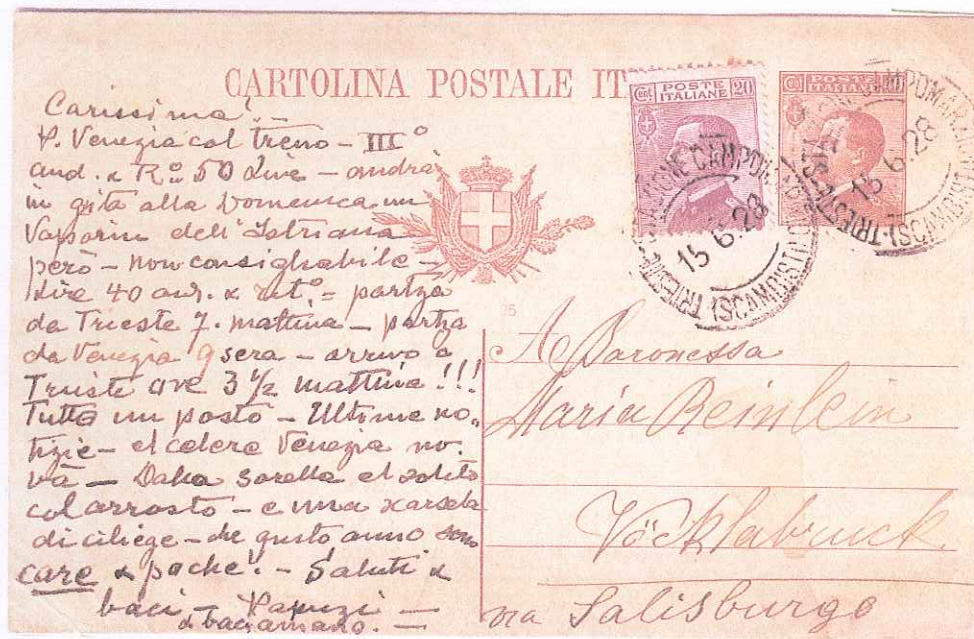 CARTOLINA POSTALE IT
Cent POSTE ITALIANE 20
POSTE ITALIANE
15 6.28
15 6.28
Carissima! -
p. Venezia col treno - III°
and. & R.º 50 Lire - andrà
in gita alla Domenica un
Vaporin dell'Istriana
però - non consigliabile -
Lire 40 and. & rit.º = partza
da Trieste 7. mattina - partza
da Venezia 9 sera - arrivo a
Trieste ore 3 1/2 mattina !!!
Tutto un posto - Ultime no-
tizie - el colera Venezia no.
va - Dalla sorella el solito
col arrosto - e una
di ciliege - che questo anno sono
care & poche! - Saluti &
baci -
& baciamano. -
25
A Baronessa
Maria Reinlein
Vöcklabruck
via Salisburgo